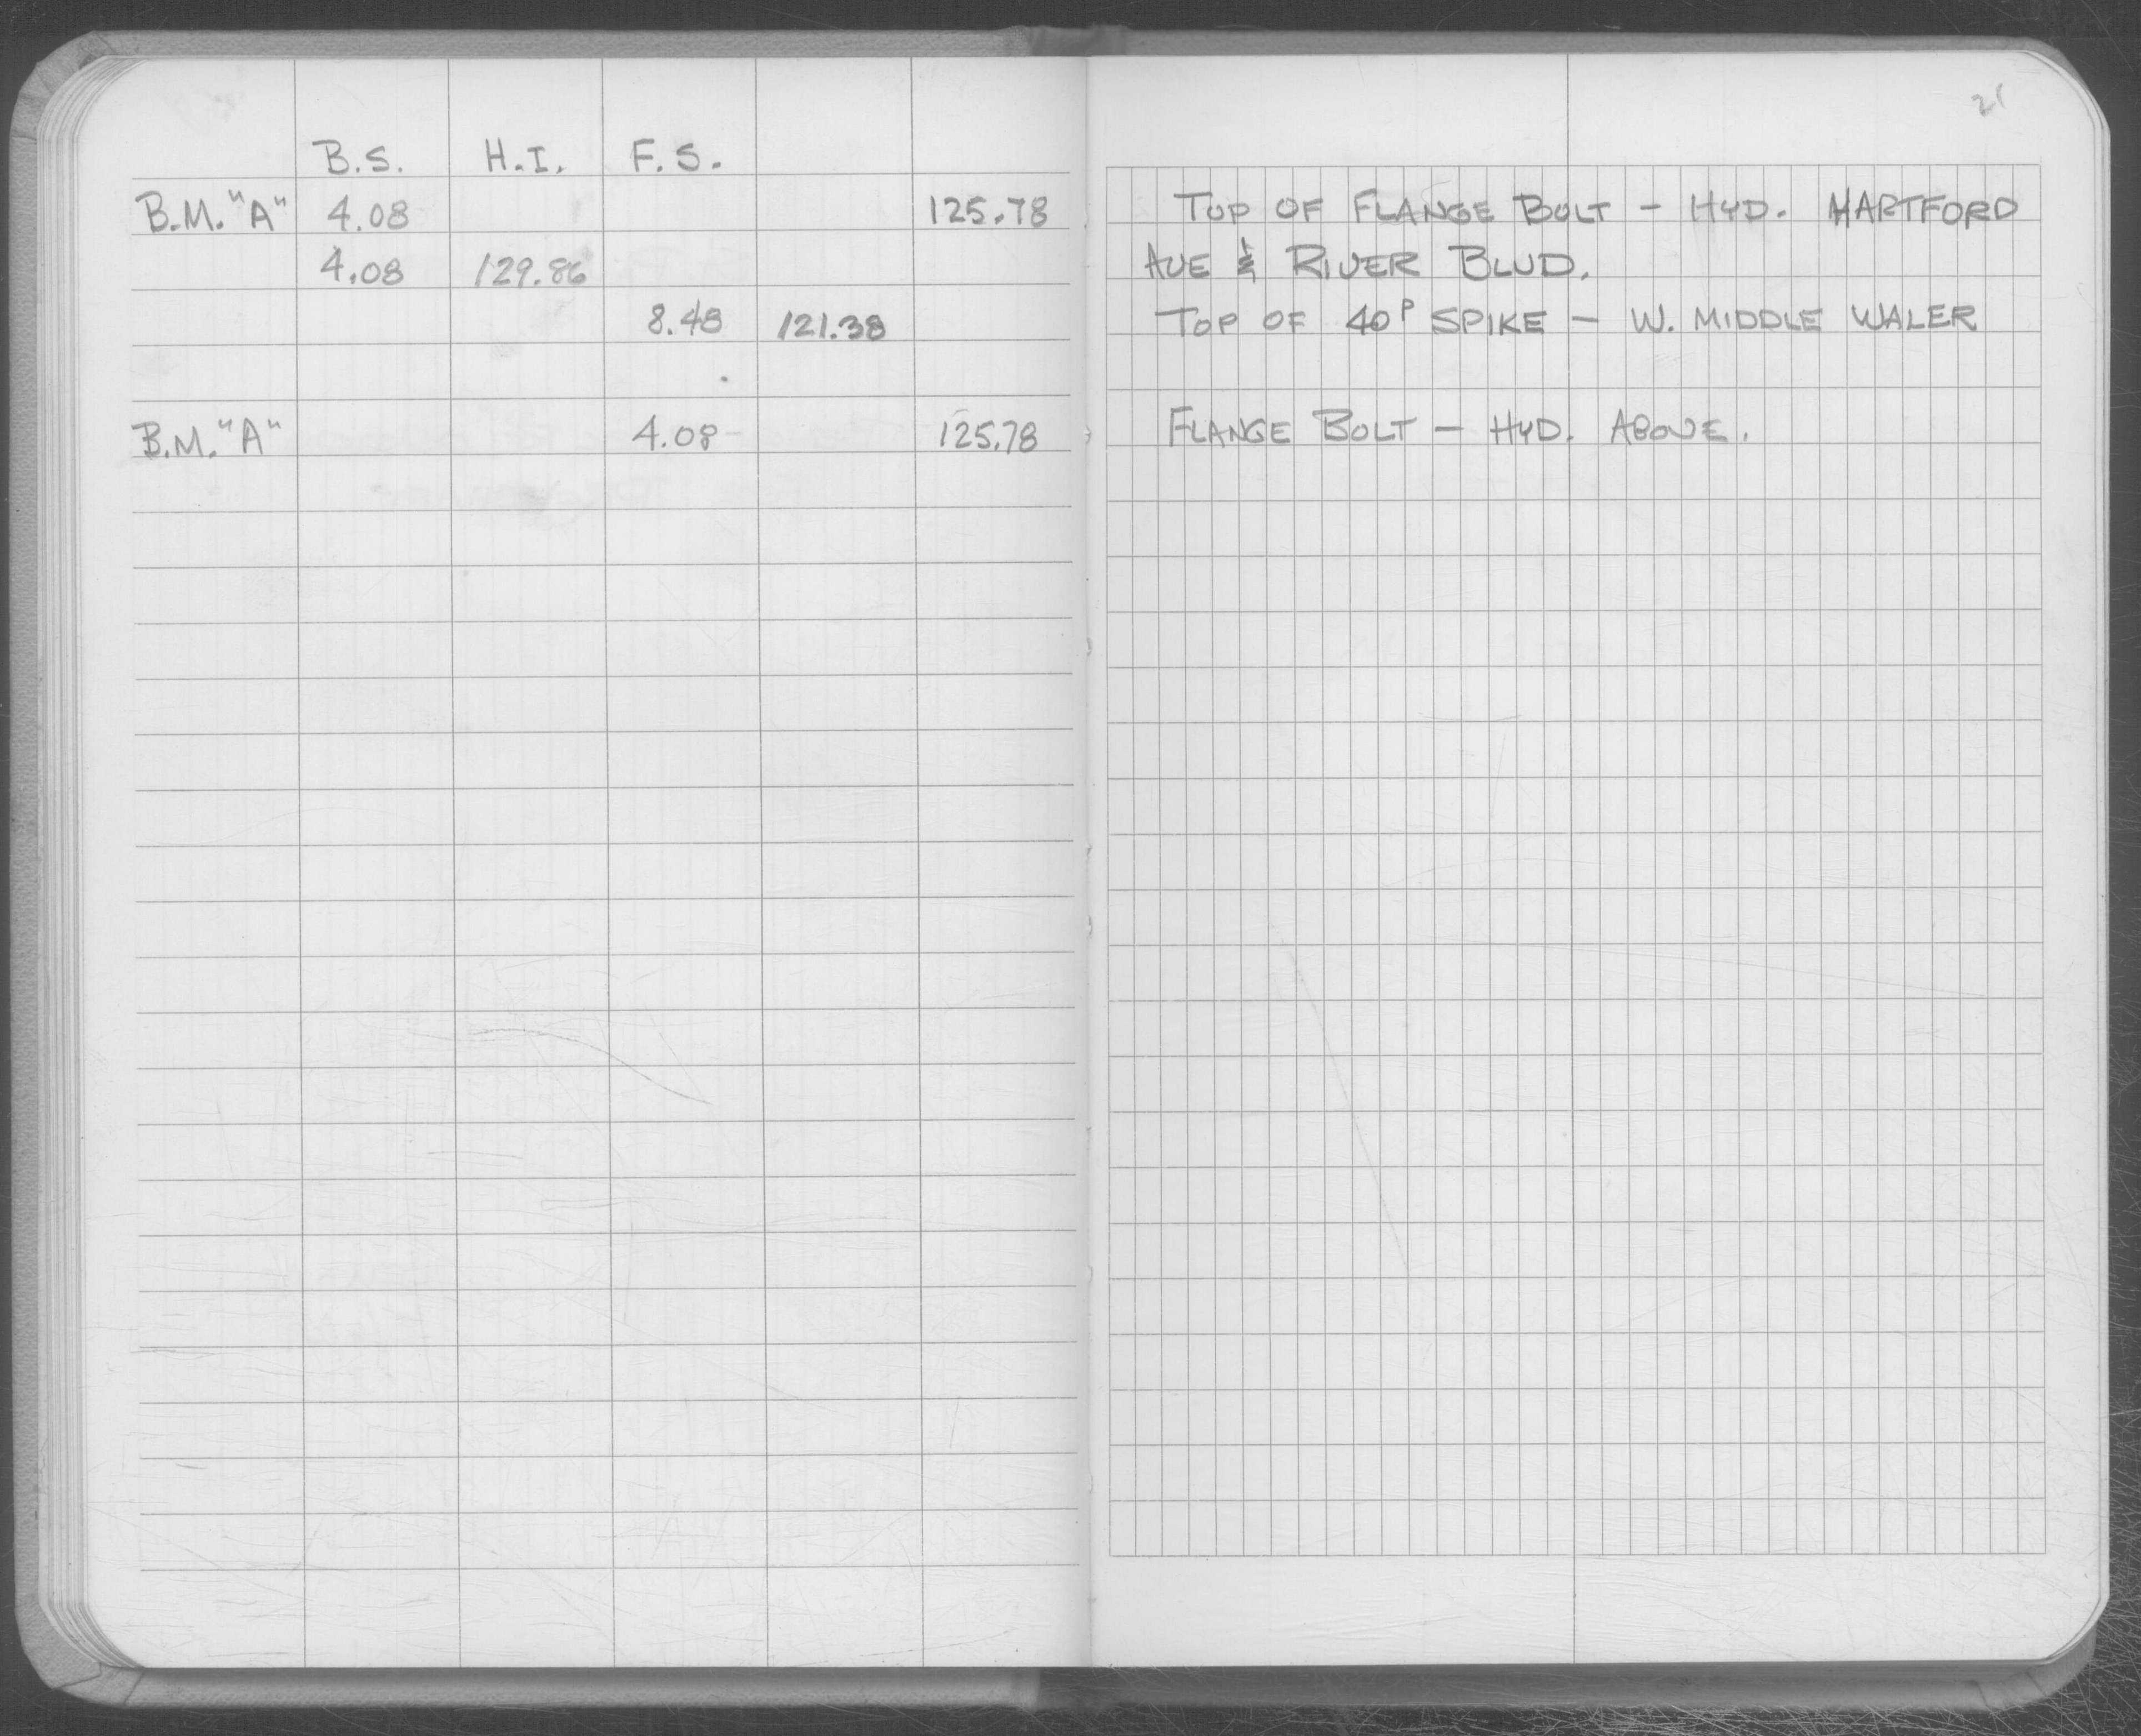 21
B.S. H.I. F.S.
B.M. "A" 4.08 125.78 TOP OF FLANGE BOLT - HYD. HARTFORD
4.08 129.86 AVE & RIVER BLVD.
8.48 121.38 TOP OF 40P SPIKE - W. MIDDLE WALER
B.M. "A" 4.08 125.78 FLANGE BOLT - HYD. ABOVE.